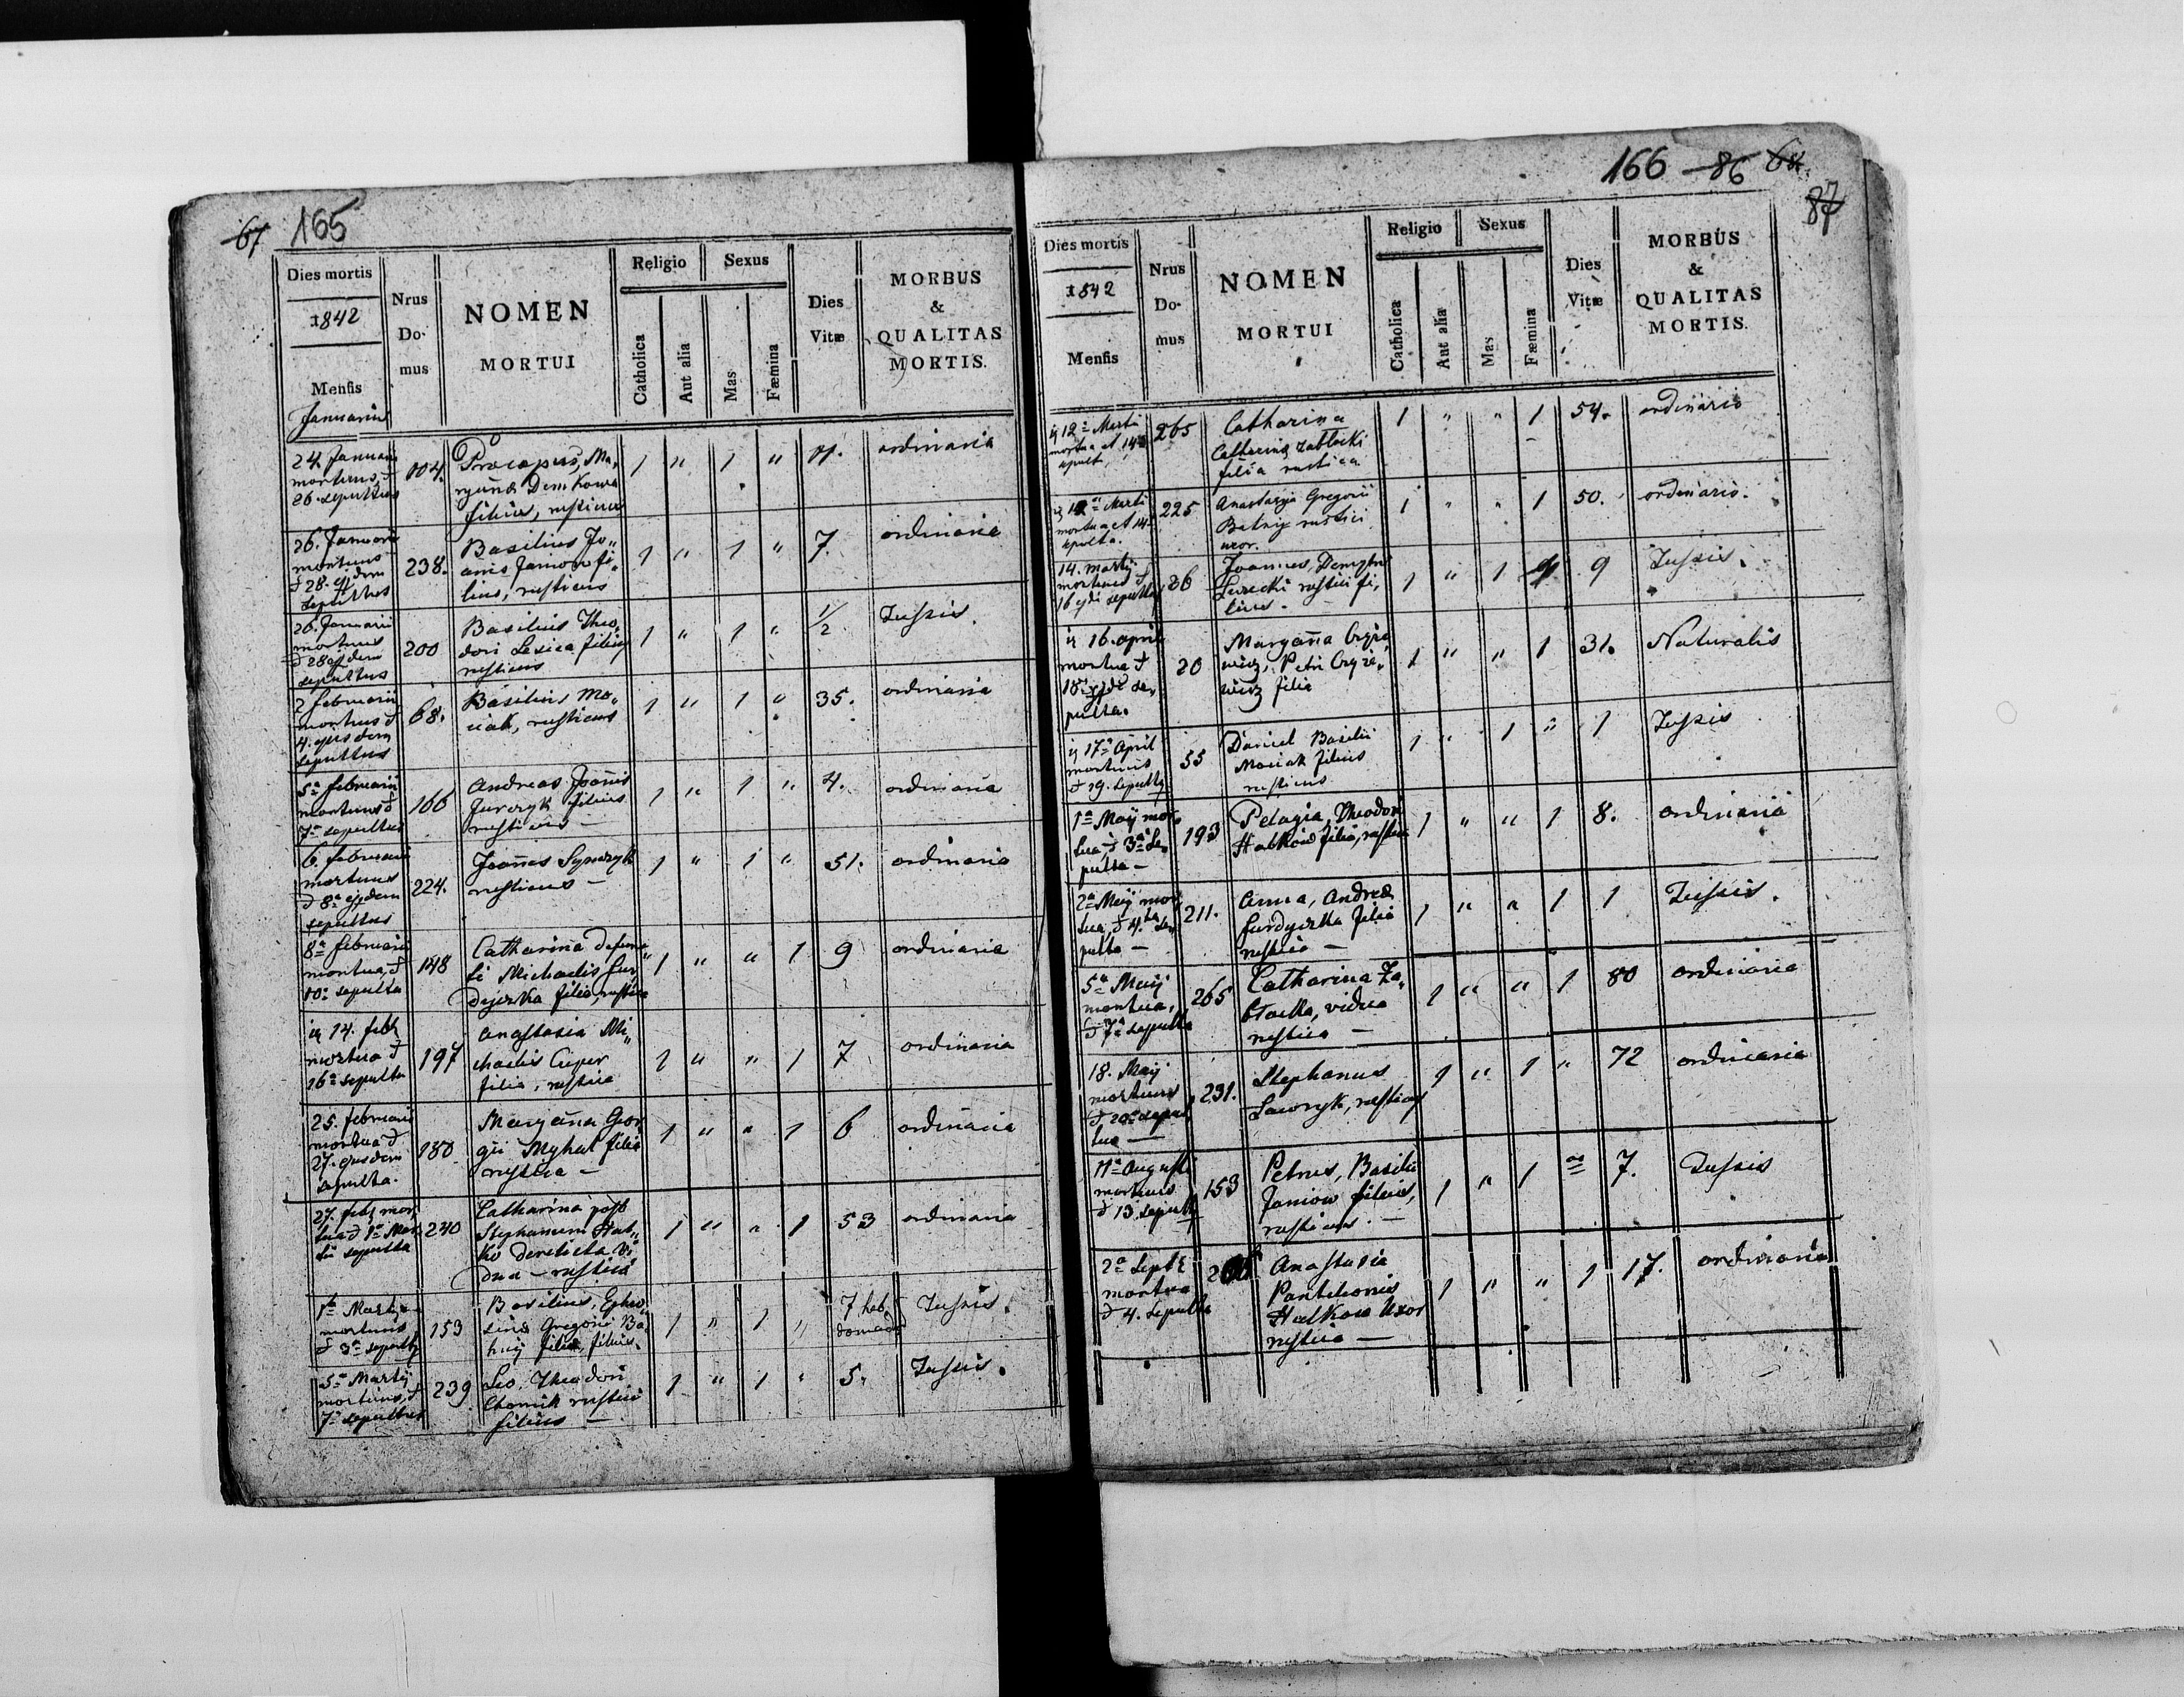 67 165
Dies mortis
1842
Mensis
Januarius
Nrus
Do-
mus
NOMEN
MORTUI
Religio
Catholica
Aut alia
Sexus
Mas
Fæmina
Dies
Vitæ
MORBUS
&
QUALITAS
MORTIS.
24. Januarii
mortuus,
26. sepultus
104.
Procopius, Ma,
ryannæ Demkowa
filius, rusticus
1 " 1 " 11. ordinaria
26. Januarii
mortuus
28. ejdem
sepultus
238.
Basilius Jo,,
anis Janiow fi,
lius, rusticus
1 " 1 " 7. ordinaria
26. Januarii
mortuus
28 ejdem
sepultus
200
Basilius Theo,
dori Lesica filius
rusticus
1 " 1 " 1/2 Tussis.
2 februarii
mortuus
4. ejusdem
sepultus
68.
Basilius Mo,,
ciak, rusticus
1 " 1 " 35. ordinaria
5a februarii
mortuus
7a sepultus
166
Andreas Joanis
Jurczyk filius
rusticus —
1 " 1 " 4. ordinaria
6. februarii
mortuus
8a ejdem
sepultus
224.
Joanes
rusticus —
1 " 1 " 51. ordinaria
8a februarii
mortua,
10a sepulta
148
Catharina defunc
ti Michaelis fur,
dyczka filia, rustica
1 " " 1 9 ordinaria
14. feb
mortua
16a sepulta
197
Anastasia Mi,,
chaelis Ciuper
filia, rustica
1 " " 1 7 ordinaria
25. februarii
mortua
27. ejusdem
sepulta.
180
Maryanna Geor
gii Myhal filia
rustica —
1 " " 1 6 ordinaria
27. feb mor
tua 1a Mar
tii sepulta
240
Catharina post
Stephanum Hat,,
ko derelicta Vi
dua — rustica
1 " " 1 53 ordinaria
1a Martii
mortuus
3a sepultus
153
Basilius, Euphro,
sinæ Gregorii Ba
huj filiæ, filius.
1 " 1 " 7 heb,
domadæ Tussis.
5a Martij
mortuus,
7a sepultus
239
Leo, Theodori
Chomik rustici
filius —
1 " 1 " 5. Tussis.
166 86 68.
87
87
Dies mortis
1842
Mensis
Nrus
Do-
mus
NOMEN
MORTUI
Religio
Catholica
Aut alia
Sexus
Mas
Fæmina
Dies
Vitæ
MORBUS
&
QUALITAS
MORTIS.
12a Martii
mortua et 14a
sepult,
265
Catharina
Catharinæ Zabłocki
filia rustica
1 " " 1 54. ordinario
12a Martii
mortua et 14
sepulta.
225
Anastazja Gregorii
rustici
uxor.
1 " " 1 50. ordinario.
14. Martij
mortuus
16 ejdi sepultus
26
Joannes, Demetrii
rustici fi,
lius.
1 " 1 9 Tussis.
16. april
mortua
18. ejde se,
pulta.
20
Maryanna Czyże
wicz, Petri Czyże,,
wicz filia
1 " " 1 31. Naturalis
17a April
mortuus
19. sepultus
55
Daniel Basilii
Mociak filius
rusticus
1 " 1 " 1 Tussis
1a Maij mor,
tua 3a se,
pulta —
193
Pelagia, Theodori
Hatkow filia, rustica
1 " " 1 8. ordinaria
2a Maij mor
tua, 4ta se,
pulta —
211.
Anna, Andreæ
furdyczka filia
rustica —
1 " " 1 1 Tussis.
5a Maij
mortua,
7a sepulta
265
Catharina Za,
błocka, vidua
rustica —
1 " " 1 80 ordinaria
18. Maij
mortuus
20a sepul
tus —
231.
Stephanus
Lawryk, rusticus
1 " 1 " 72 ordinaria
11a Augusti
mortuus
13. sepultus
153
Petrus, Basilii
Janiow filius,
rusticus. —
1 " 1 " 7. Tussis
2a Septb
mortua
4. sepulta
Anastasia
Panteleonis
Hatkow Uxor
rustica —
1 " " 1 17. ordinaria